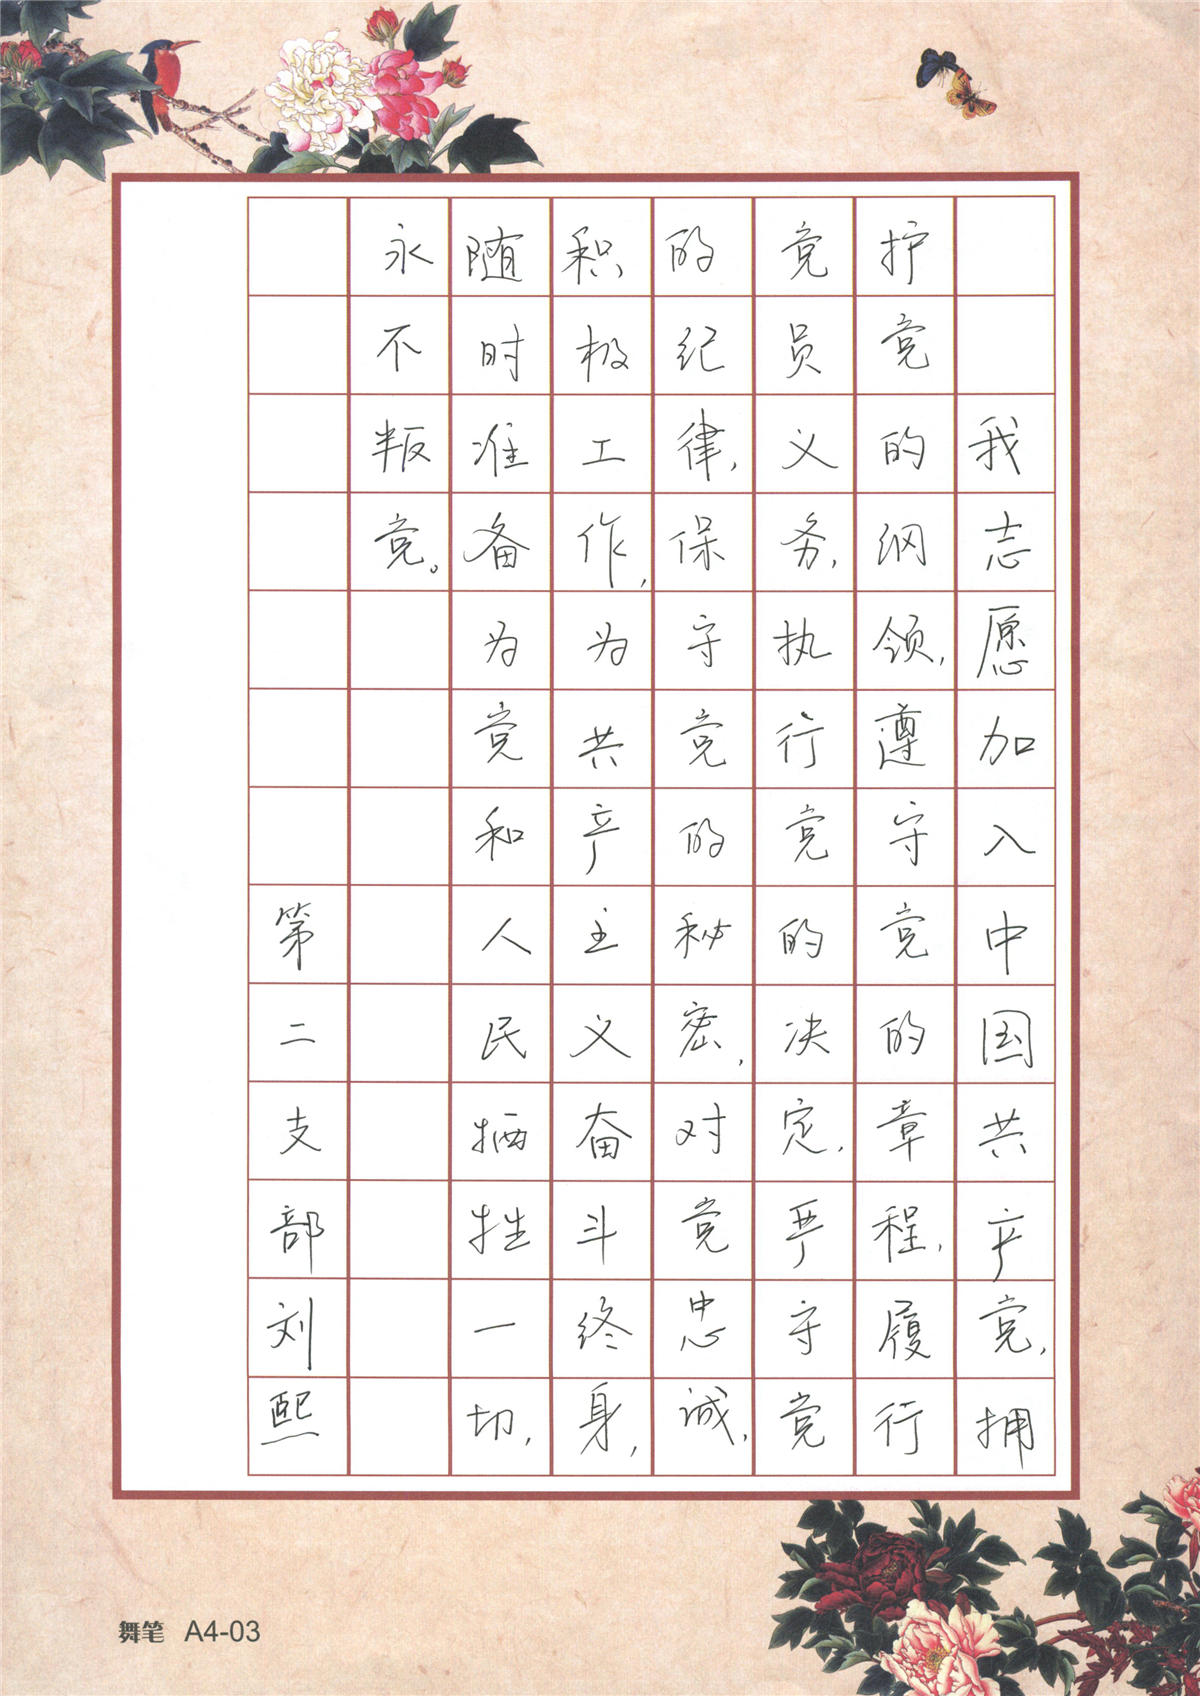 我志愿加入中国共产党,拥
护党的纲领,遵守党的章程,履行
党员义务,执行党的决定,严守党
的纪律,保守党的秘密,对党忠诚,
积极工作,为共产主义奋斗终身,
随时准备为党和人民牺牲一切,
永不叛党。
第二支部刘熙
舞笔 A4-03